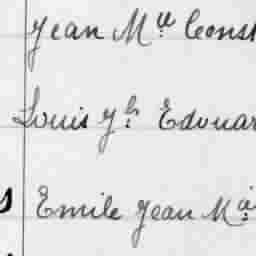 Jean Mie Const
Louis Jh Edouar
Emile Jean Mie